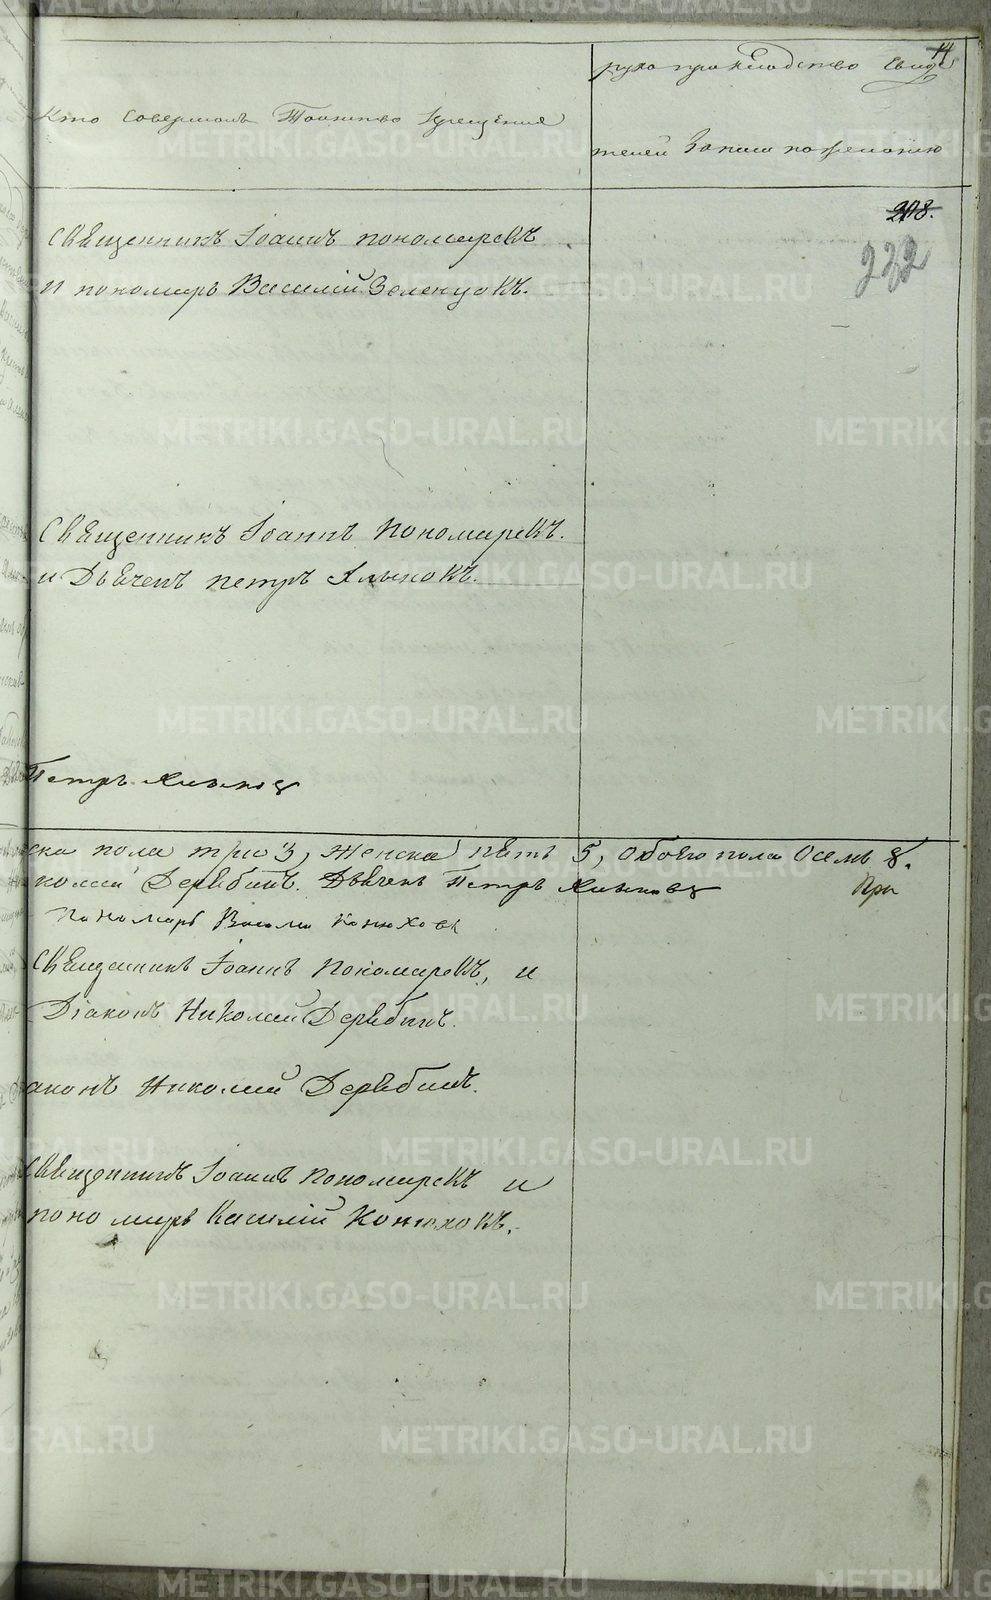 14
рукоприкладство свиде
Кто совершалъ Таинство Крещения
телей Записи по желанию
208.
222
Священникъ Іоаннъ пономаревъ
и пономарь Василій
Священникъ Іоаннъ Пономаревъ.
и Дьяченъ петръ
Петръ
ска пола три 3, женска пять 5, обоего пола Осемь 8.
колай Дерябинъ. Дьяченъ Петръ
При
Пономарь Конюховъ
Священникъ Іоаннъ Пономаревъ, и
Діаконъ Николай Дерябинъ.
аконъ Николай Дерябинъ.
Священникъ Іоаннъ пономаревъ и
пономарь Василій Конюховъ.
METRIKI.GASO-URAL.RU